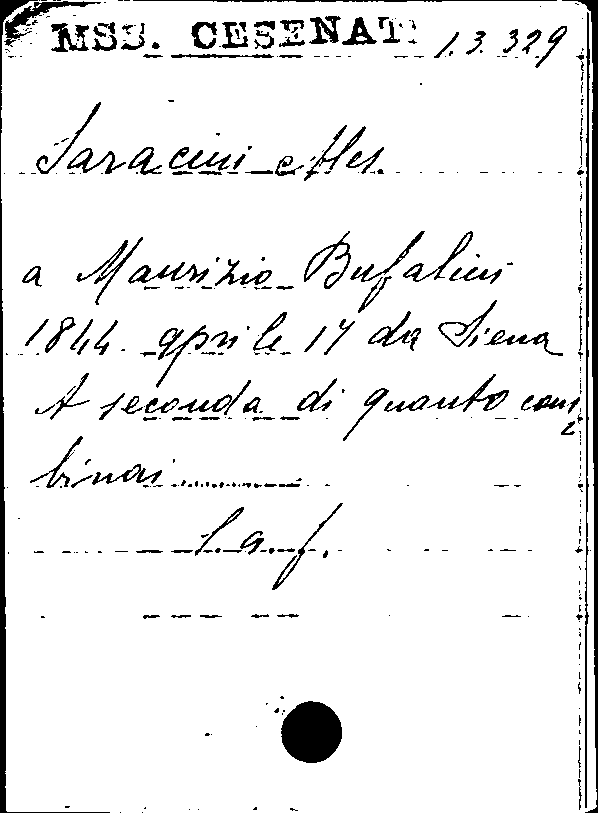 MSS. CESENATI 1.3.329
Saracini Ales.
a Maurizio Bufalini
1844 aprile 17 da Siena
A seconda di quanto com=
binai ..........
l.a.f.